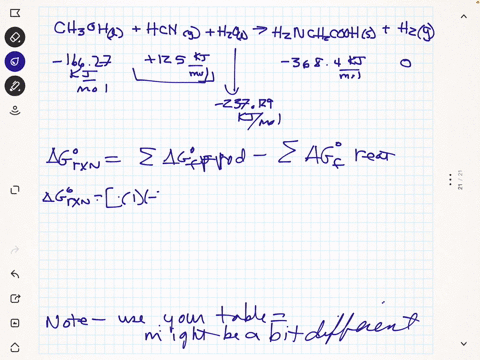 CH3OH(l) + HCN(g) + H2O(l) → H2NCH2COOH(s) + H2(g)
-166.27 KJ/mol +125 KJ/mol -368.4 KJ/mol 0
-237.129 KJ/mol
ΔG°RXN = Σ ΔG°f prod - Σ ΔG°f reat
ΔG°rxn = [(1)(-
Note - use your table -
might be a bit different
21 / 21